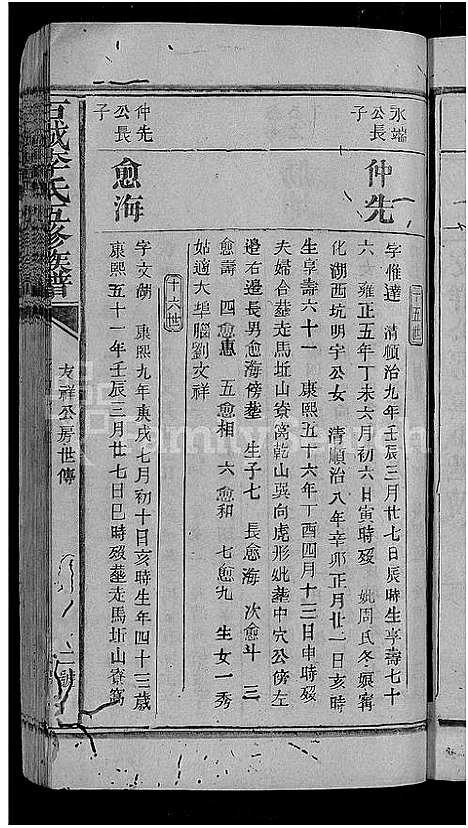 十五世
永端公長子
仲先
字惟達 清順治九年壬辰三月廿七日辰時生享壽七十
六 雍正五年丁未六月初六日寅時歿 妣周氏冬娘寗
化湖西坑明字公女 清順治八年辛卯正月廿一日亥時
生享壽六十一 康熙五十六年丁酉四月十三日申時歿
夫婦合墓走馬坵山寮窩乾山巽向虎形妣墓中穴公傍左
邉右邉長男愈海傍墓 生子七 長愈海 次愈斗 三
愈壽 四愈惠 五愈相 六愈和 七愈九 生女一秀
姑適大埠腦劉文祥
十六世
仲先公長子
愈海
字文湖 康熙九年庚戌七月初十日亥時生年四十三歲
康熙五十一年壬辰三月廿七日巳時歿墓走馬坵山寮窩
李氏五修族譜
友祥公房世傳